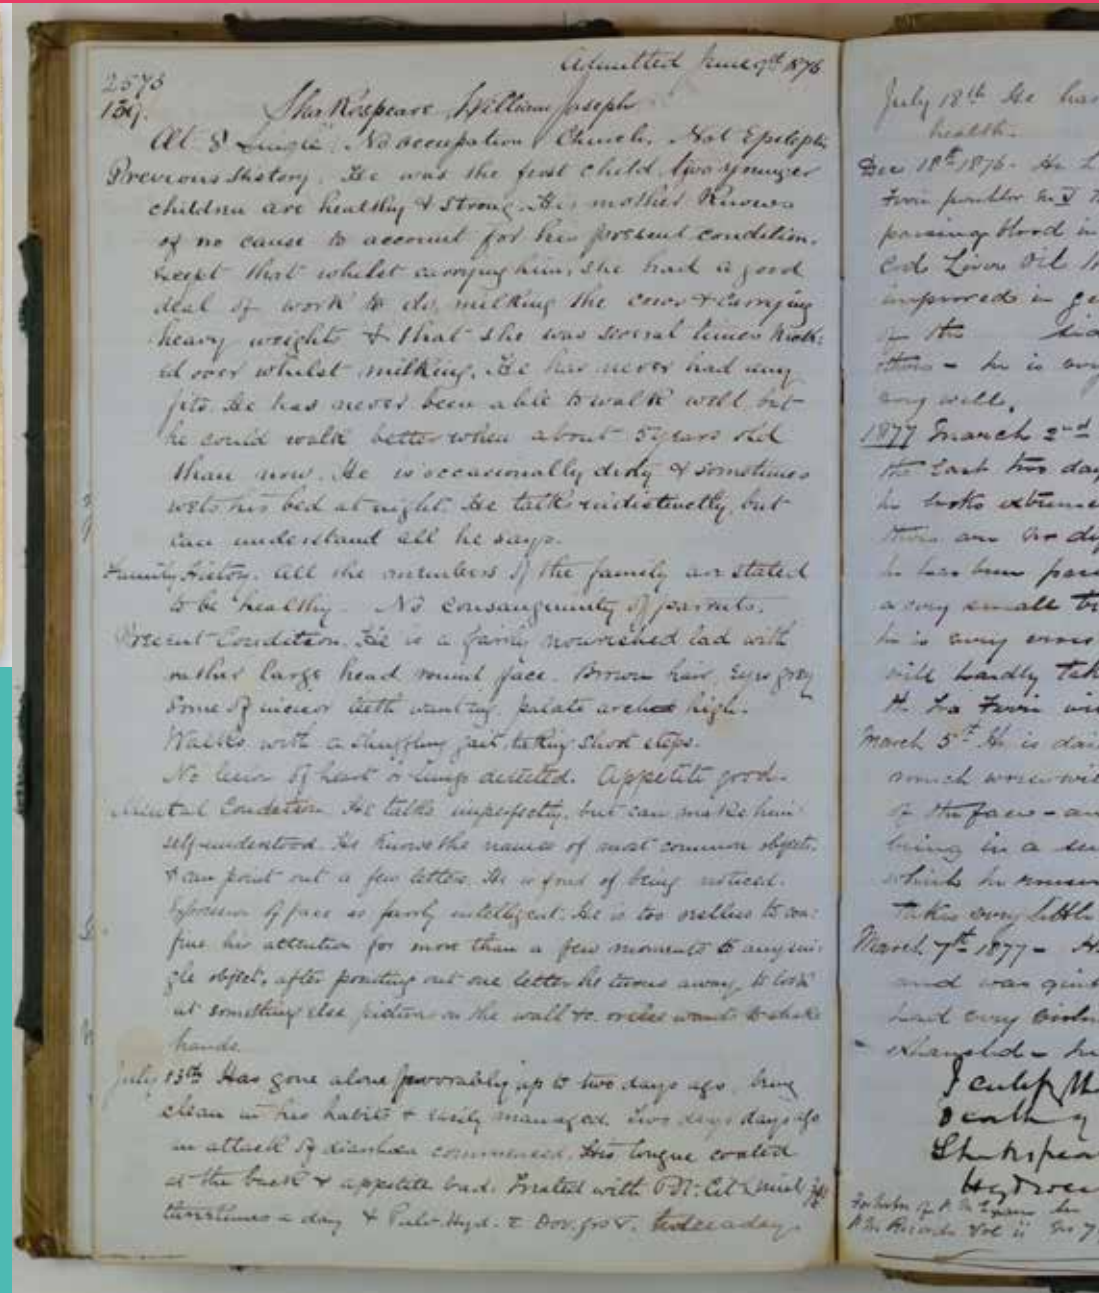 Admitted June 9th 1876
2573
139.
Shakespeare William Joseph
Æt 8 Single. No occupation Church. Not Epileptic
Previous History. He was the first child, two younger
children are healthy & strong. His mother knows
of no cause to account for his present condition,
except that whilst carrying him, she had a good
deal of work to do, milking the cows & carrying
heavy weights & that she was several times knock:
ed over whilst milking. He has never had any
fits. He has never been able to walk well, but
he could walk better when about 5 years old
than now. He is occasionally dirty & sometimes
wets his bed at night. He talks indistinctly, but
can understand all he says.
Family History. All the members of the family are stated
to be healthy. No consanguinity of parents.
Present Condition. He is a fairly nourished lad with
rather large head round face. Brown hair, Eyes grey
Some of incisor teeth wanting. palate arched high.
Walks with a shuffling gait, taking short steps.
No lesion of heart or lungs detected. Appetite good.
Mental Condition. He talks imperfectly, but can make him
self understood. He knows the names of most common objects,
& can point out a few letters. He is fond of being noticed.
Expression of face is fairly intelligent. He is too restless to con:
fine his attention for more than a few moments to any sin:
gle object, after pointing out one letter he turns away, to look
at something else picture on the wall &c. or else wants to shake
hands.
July 13th Has gone alone favorably up to two days ago, being
clean in his habits & easily managed. Two days days ago
an attack of diarrhœa commenced. His tongue coated
at the back & appetite bad. Treated with
three times a day & Pulv. Hyd. c̄ Dov. grs v. twice a day.
July 18th He has
health.
Dec 18th 1876. He
passing blood in
Cod Liver Oil
improved in ge
of the
others - he is very
very well.
1877 March 2nd
the last two day
he looks extreme
there are no dy
he has been pass
a very small
he is very
will hardly tak
March 5th He is
much worse wi
of the face - an
being in a
which he
takes very little
March 7th 1877 - H
and was quie
had very
exhausted - he
I certify th
death of
Shakspear